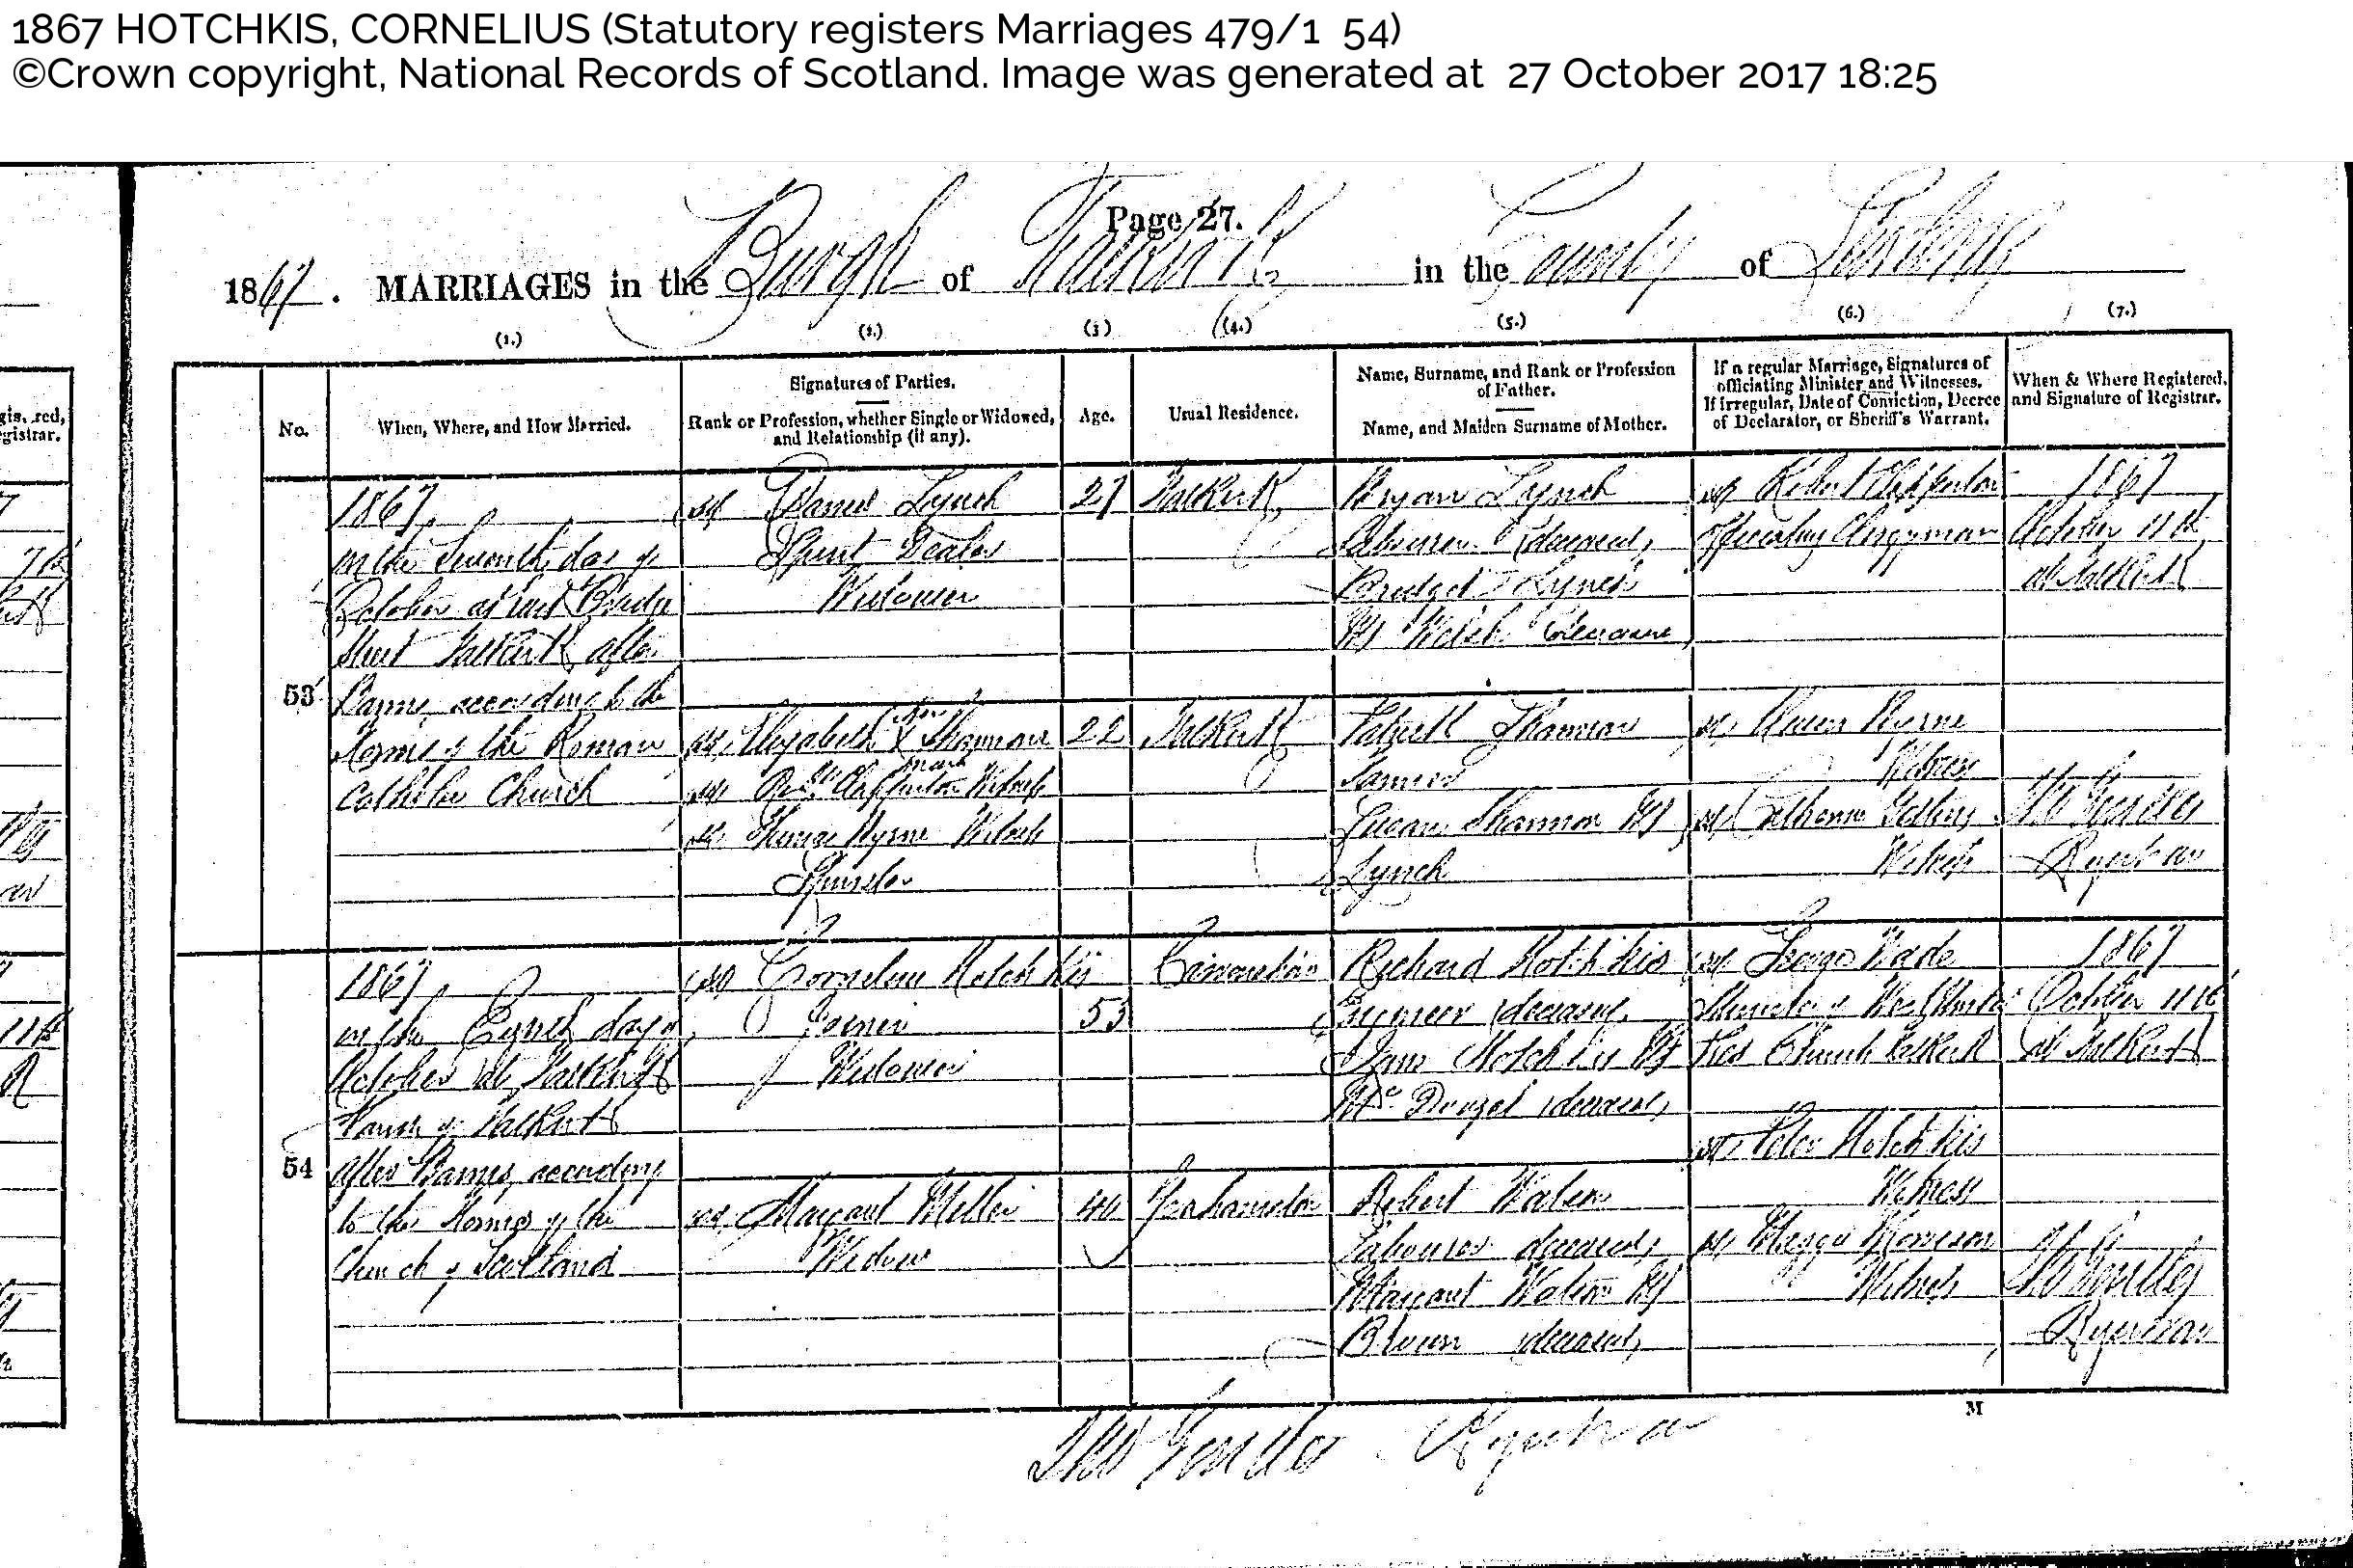 1867 HOTCHKIS, CORNELIUS (Statutory registers Marriages 479/1 54)
©Crown copyright, National Records of Scotland. Image was generated at 27 October 2017 18:25
Page 27.
1867. MARRIAGES in the Burgh of Falkirk in the County of Stirling
(1.) (2.) (3) (4.) (5.) (6.) (7.)
No.
When, Where, and How Married.
Signatures of Parties.
Rank or Profession, whether Single or Widowed,
and Relationship (if any).
Age.
Usual Residence.
Name, Surname, and Rank or Profession
of Father.
Name, and Maiden Surname of Mother.
If a regular Marriage, Signatures of
officiating Minister and Witnesses.
If irregular, Date of Conviction, Decree
of Declarator, or Sheriff's Warrant.
When & Where Registered,
and Signature of Registrar.
53
1867,
on the Seventh day of
October at Bridge
Street Falkirk after
Banns, according to the
Forms of the Roman
Catholic Church
James Lynch
Spirit Dealer
Widower
Elizabeth X Shannon
mark
Witness
Thomas Byrne Witness
Spinster
27
22
Falkirk
Falkirk
Bryan Lynch
Labourer (deceased)
Bridget Lynch
MS Welsh (deceased)
Patrick Shannon
Farmer
Susan Shannon MS
Lynch
Robert
Officiating Clergyman
Byrne
Witness
Catherine
Witness
1867
October 11th
at Falkirk
Registrar
54
1867,
on the Eighth day of
October at Falkirk
Parish of Falkirk
after Banns, according
to the Forms of the
Church of Scotland
Cornelius Hotchkis
Joiner
Widower
Margaret Miller
Widow
53
40
Camelon
Grahamston
Richard Hotchkis
Engineer (deceased)
Jane Hotchkis MS
McDougal (deceased)
Robert
Labourer (deceased)
Margaret MS
Brown (deceased)
George Wade
Minister of
Church Falkirk
Peter Hotchkis
Witness
Morrison
Witness
1867
October 11th
at Falkirk
Registrar
M
Registrar